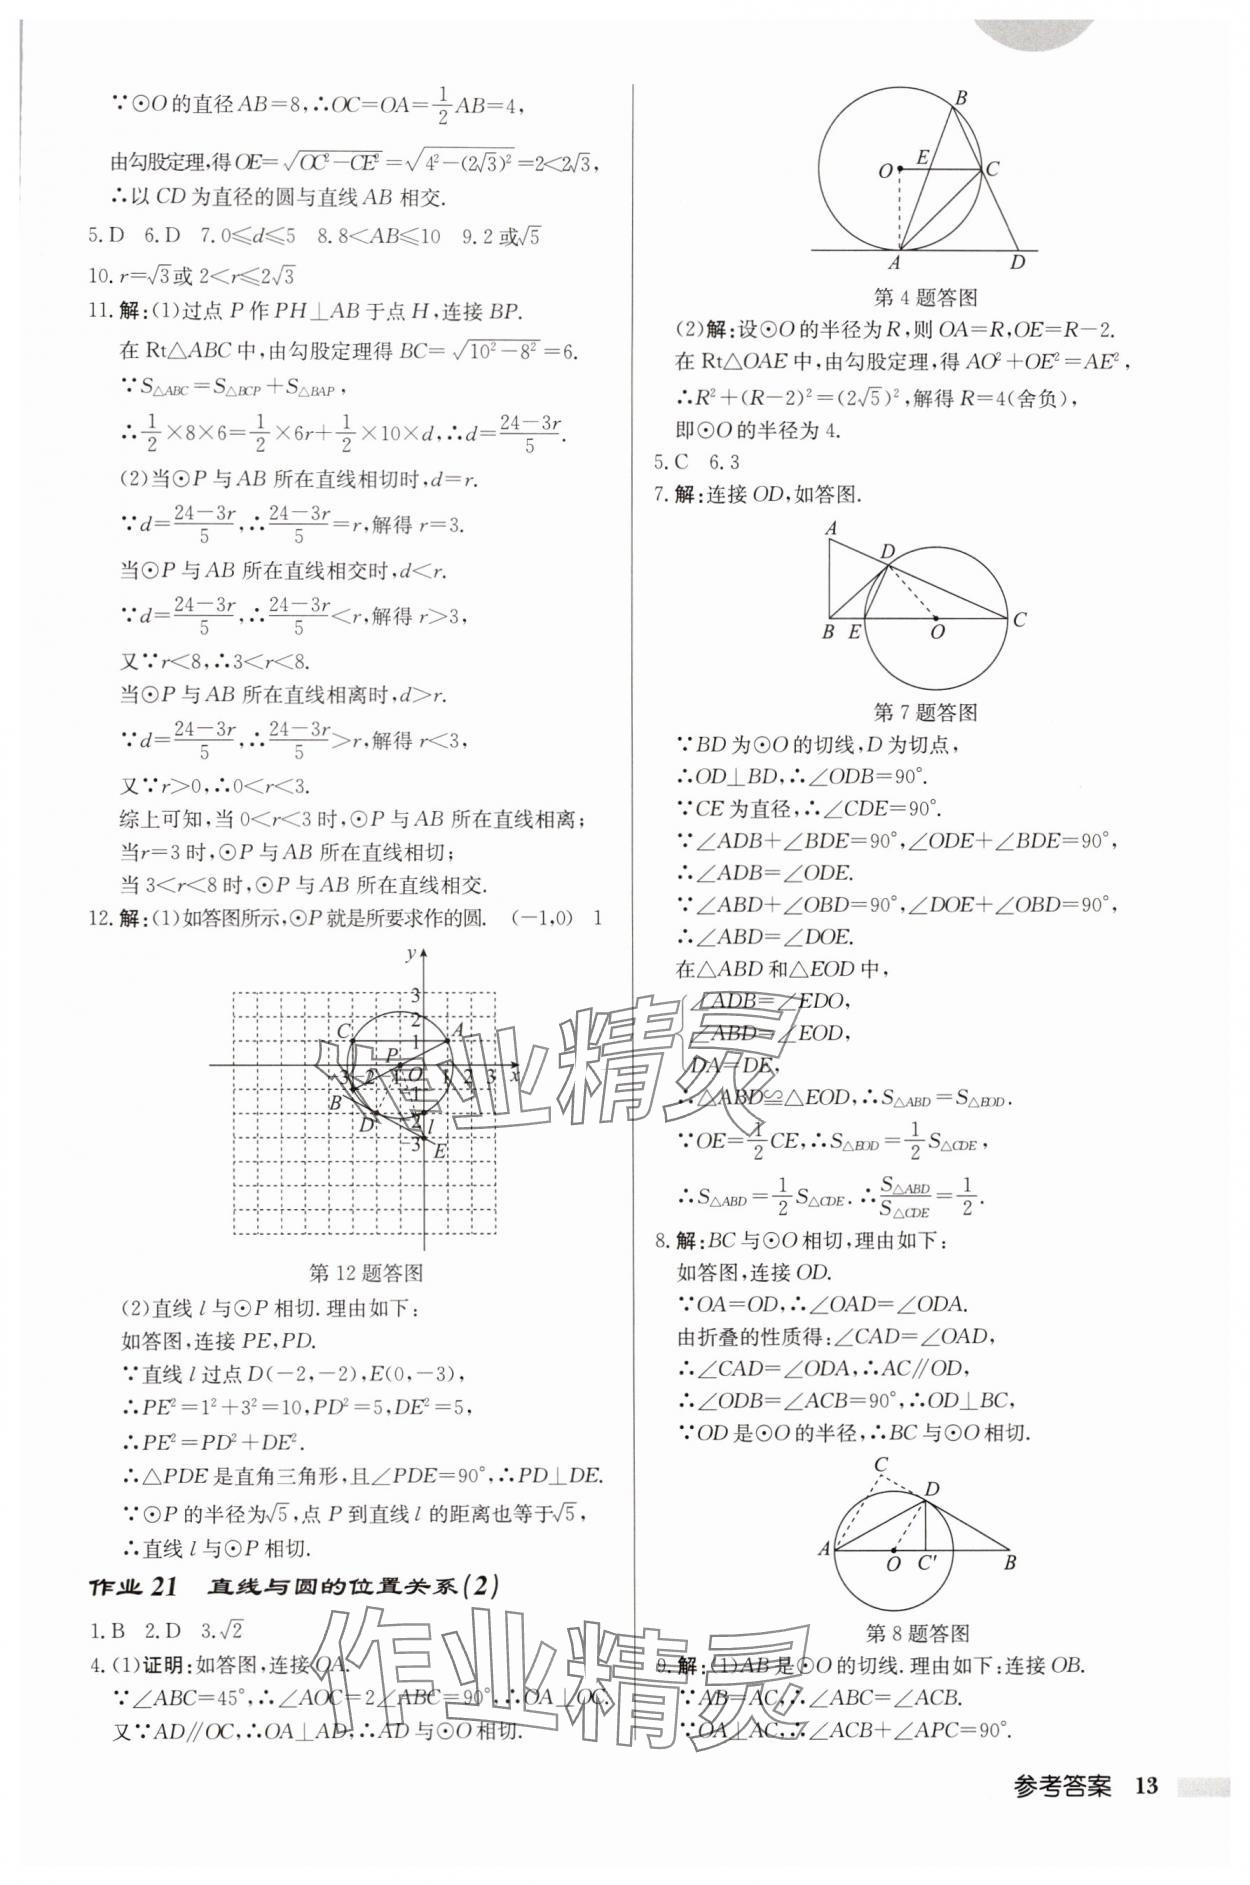 ∵⊙O的直径AB=8,∴OC=OA=1/2AB=4,
由勾股定理,得OE=√(OC²-CE²)=√(4²-(2√3)²)=2<2√3,
∴以CD为直径的圆与直线AB相交.
5.D 6.D 7.0≤d≤5 8.8<AB≤10 9.2或√5
10.r=√3或2<r≤2√3
11.解:(1)过点P作PH⊥AB于点H,连接BP.
在Rt△ABC中,由勾股定理得BC=√(10²-8²)=6.
∵S△ABC=S△BCP+S△BAP,
∴1/2×8×6=1/2×6r+1/2×10×d,∴d=(24-3r)/5.
(2)当⊙P与AB所在直线相切时,d=r.
∵d=(24-3r)/5,∴(24-3r)/5=r,解得r=3.
当⊙P与AB所在直线相交时,d<r.
∵d=(24-3r)/5,∴(24-3r)/5<r,解得r>3,
又∵r<8,∴3<r<8.
当⊙P与AB所在直线相离时,d>r.
∵d=(24-3r)/5,∴(24-3r)/5>r,解得r<3,
又∵r>0,∴0<r<3.
综上可知,当0<r<3时,⊙P与AB所在直线相离;
当r=3时,⊙P与AB所在直线相切;
当3<r<8时,⊙P与AB所在直线相交.
12.解:(1)如答图所示,⊙P就是所要求作的圆. (-1,0) 1
y
3
2
C 1 A
P
-3 -2 -1 O 1 2 3 x
B -1
D -2 l
-3 E
第12题答图
(2)直线l与⊙P相切.理由如下:
如答图,连接PE,PD.
∵直线l过点D(-2,-2),E(0,-3),
∴PE²=1²+3²=10,PD²=5,DE²=5,
∴PE²=PD²+DE².
∴△PDE是直角三角形,且∠PDE=90°,∴PD⊥DE.
∵⊙P的半径为√5,点P到直线l的距离也等于√5,
∴直线l与⊙P相切.
作业21 直线与圆的位置关系(2)
1.B 2.D 3.√2
4.(1)证明:如答图,连接OA.
∵∠ABC=45°,∴∠AOC=2∠ABC=90°,∴OA⊥OC.
又∵AD∥OC,∴OA⊥AD,∴AD与⊙O相切.
B
E
O C
A D
第4题答图
(2)解:设⊙O的半径为R,则OA=R,OE=R-2.
在Rt△OAE中,由勾股定理,得AO²+OE²=AE²,
∴R²+(R-2)²=(2√5)²,解得R=4(舍负),
即⊙O的半径为4.
5.C 6.3
7.解:连接OD,如答图.
A
D
B E O C
第7题答图
∵BD为⊙O的切线,D为切点,
∴OD⊥BD,∴∠ODB=90°.
∵CE为直径,∴∠CDE=90°.
∵∠ADB+∠BDE=90°,∠ODE+∠BDE=90°,
∴∠ADB=∠ODE.
∵∠ABD+∠OBD=90°,∠DOE+∠OBD=90°,
∴∠ABD=∠DOE.
在△ABD和△EOD中,
∠ADB=∠EDO,
∠ABD=∠EOD,
DA=DE,
∴△ABD≌△EOD,∴S△ABD=S△EOD.
∵OE=1/2CE,∴S△EOD=1/2S△CDE,
∴S△ABD=1/2S△CDE.∴S△ABD/S△CDE=1/2.
8.解:BC与⊙O相切,理由如下:
如答图,连接OD.
∵OA=OD,∴∠OAD=∠ODA.
由折叠的性质得:∠CAD=∠OAD,
∴∠CAD=∠ODA,∴AC∥OD,
∴∠ODB=∠ACB=90°,∴OD⊥BC,
∵OD是⊙O的半径,∴BC与⊙O相切.
C
D
A O C′ B
第8题答图
9.解:(1)AB是⊙O的切线.理由如下:连接OB.
∵AB=AC,∴∠ABC=∠ACB.
∵OA⊥AC,∴∠ACB+∠APC=90°.
作业精灵
作业精灵
参考答案 13